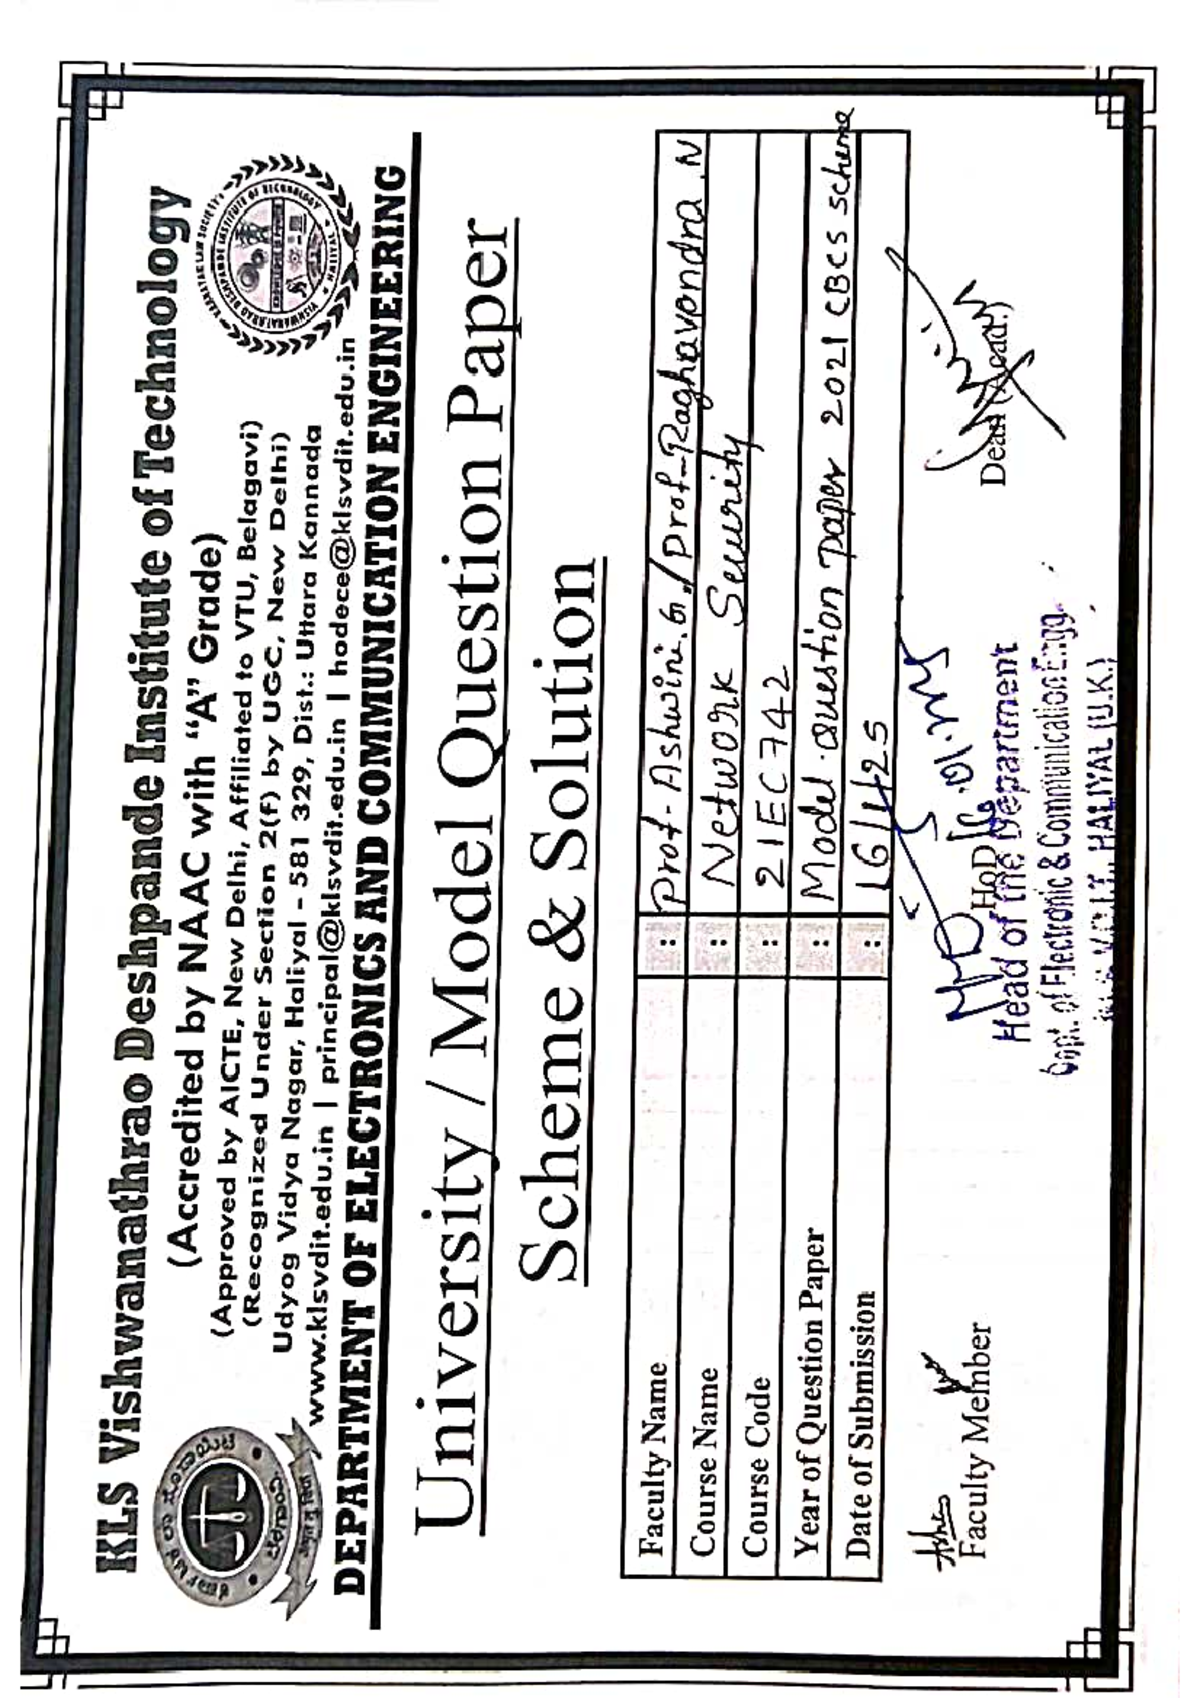 KLS Vishwanathrao Deshpande Institute of Technology
(Accredited by NAAC with "A" Grade)
(Approved by AICTE, New Delhi, Affiliated to VTU, Belagavi)
(Recognized Under Section 2(f) by UGC, New Delhi)
Udyog Vidya Nagar, Haliyal - 581 329, Dist.: Uttara Kannada
www.klsvdit.edu.in | principal@klsvdit.edu.in | hodece@klsvdit.edu.in
DEPARTMENT OF ELECTRONICS AND COMMUNICATION ENGINEERING
University / Model Question Paper
Scheme & Solution
Faculty Name : Prof. Ashwini. G. / Prof. Raghavendra .N
Course Name : Network Security
Course Code : 21EC742
Year of Question Paper : Model question paper 2021 CBCS scheme
Date of Submission : 16/1/25
Faculty Member
HoD
Dean (Acad.)
Head of the Department
Dept. of Electronic & Communication Engg.
HALIYAL (U.K.)